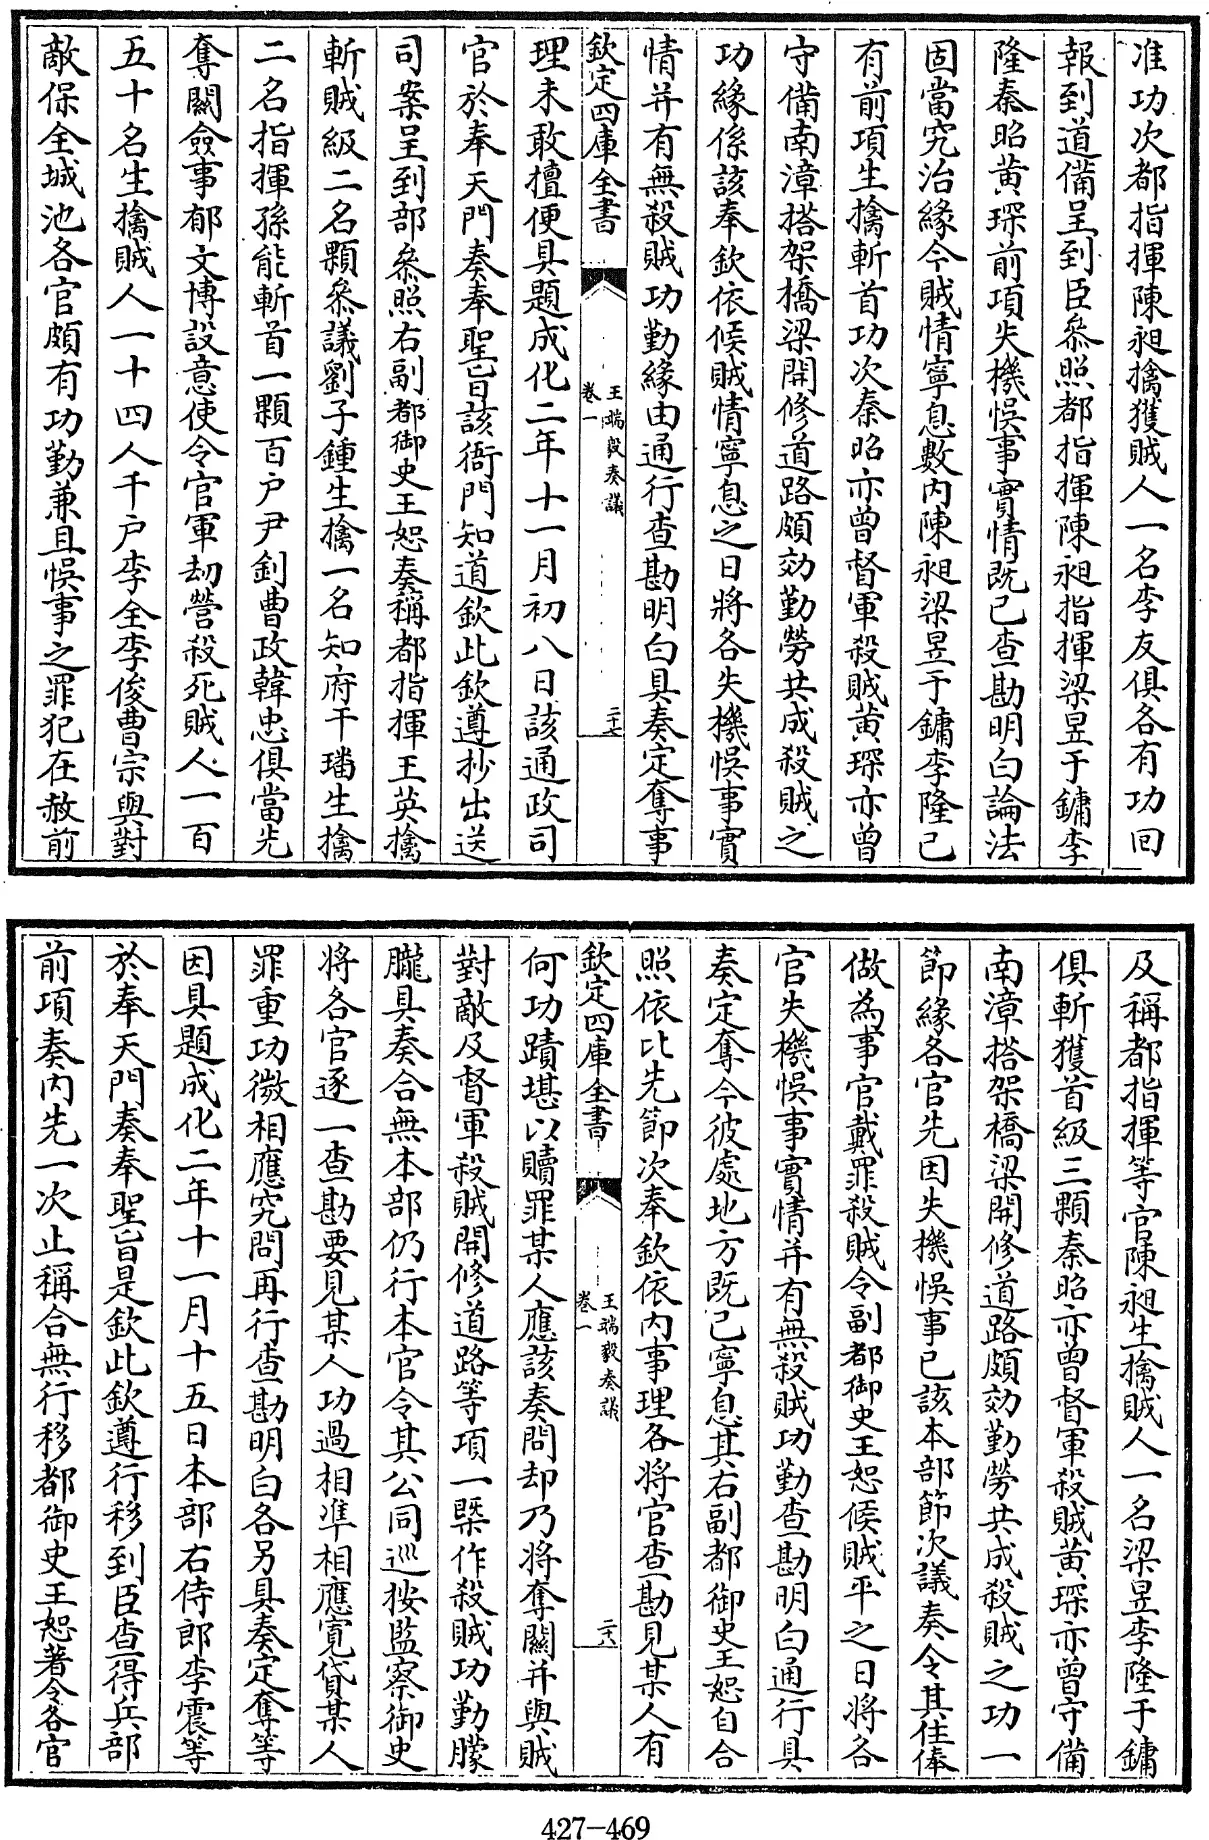 准功次都指揮陳昶擒獲賊人一名李友俱各有功回
報到道備呈到臣叅照都指揮陳昶指揮梁昱于鏞李
隆秦昭黄琛前項失機悞事實情既已查勘明白論法
固當究治緣今賊情寧息數内陳昶梁昱于鏞李隆已
有前項生擒斬首功次秦昭亦曽督軍殺賊黄琛亦曽
守備南漳搭架橋梁開修道路頗効勤勞共成殺賊之
功緣係該奉欽依候賊情寧息之日將各失機悞事實
情并有無殺賊功勤緣由通行查勘明白具奏定奪事
欽定四庫全書
王端毅奏議
卷一
二十七
理未敢擅便具題成化二年十一月初八日該通政司
官於奉天門奏奉聖旨該衙門知道欽此欽遵抄出送
司案呈到部叅照右副都御史王恕奏稱都指揮王英擒
斬賊級二名顆叅議劉子鍾生擒一名知府干璠生擒
二名指揮孫能斬首一顆百户尹釗曹政韓忠俱當先
奪關僉事郁文博設意使令官軍刼營殺死賊人一百
五十名生擒賊人一十四人千户李全李俊曹宗與對
敵保全城池各官頗有功勤兼且悞事之罪犯在赦前
及稱都指揮等官陳昶生擒賊人一名梁昱李隆于鏞
俱斬獲首級三顆秦昭亦曽督軍殺賊黄琛亦曽守備
南漳搭架橋梁開修道路頗効勤勞共成殺賊之功一
節緣各官先因失機悞事已該本部節次議奏令其住俸
做為事官戴罪殺賊令副都御史王恕候賊平之日將各
官失機悞事實情并有無殺賊功勤查勘明白通行具
奏定奪今彼處地方既已寧息其右副都御史王恕自合
照依比先節次奉欽依内事理各將官查勘見某人有
欽定四庫全書
王端毅奏議
卷一
二十八
何功蹟堪以贖罪某人應該奏問却乃將奪關并與賊
對敵及督軍殺賊開修道路等項一槩作殺賊功勤朦
朧具奏合無本部仍行本官令其公同巡按監察御史
將各官逐一查勘要見某人功過相準相應寛貸某人
罪重功微相應究問再行查勘明白各另具奏定奪等
因具題成化二年十一月十五日本部右侍郎李震等
於奉天門奏奉聖旨是欽此欽遵行移到臣查得兵部
前項奏内先一次止稱合無行移都御史王恕著令各官
427-469